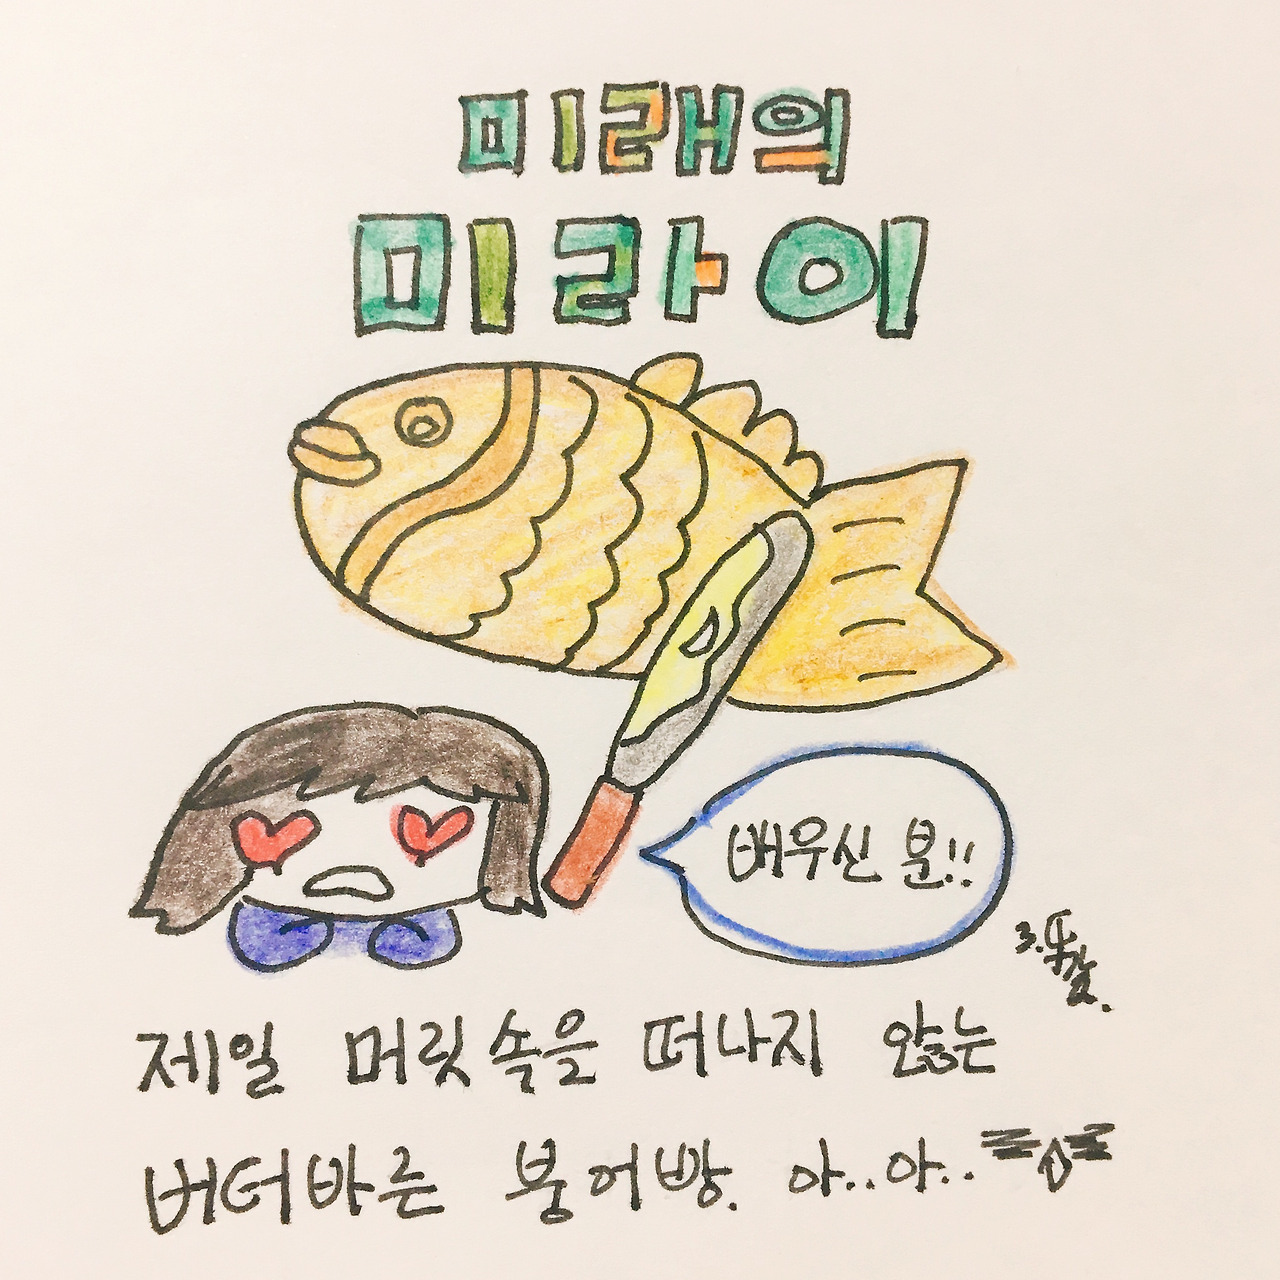 미래의
미라이
배우신 분!!
제일 머릿속을 떠나지 않는
버터바른 붕어빵. 아..아..